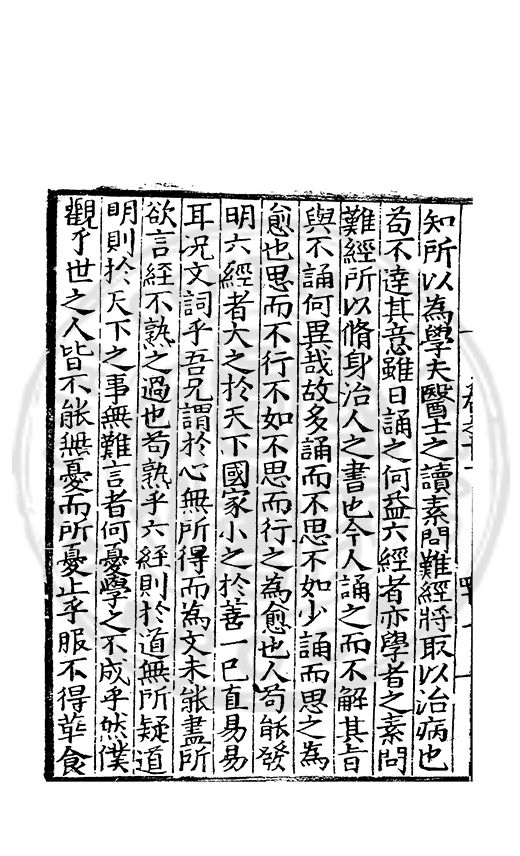 知所以為學夫醫士之讀素問難經將取以治病也
苟不達其意雖日誦之何益六經者亦學者之素問
難經所以脩身治人之書也今人誦之而不解其旨
與不誦何異哉故多誦而不思不如少誦而思之為
愈也思而不行不如不思而行之為愈也人苟能發
明六經者大之於天下國家小之於善一已直易易
耳况文詞乎吾兄謂於心無所得而為文未能盡所
欲言經不熟之過也苟熟乎六經則於道無所疑道
明則於天下之事無難言者何憂學之不成乎然僕
觀乎世之人皆不能無憂而所憂止乎服不得華食